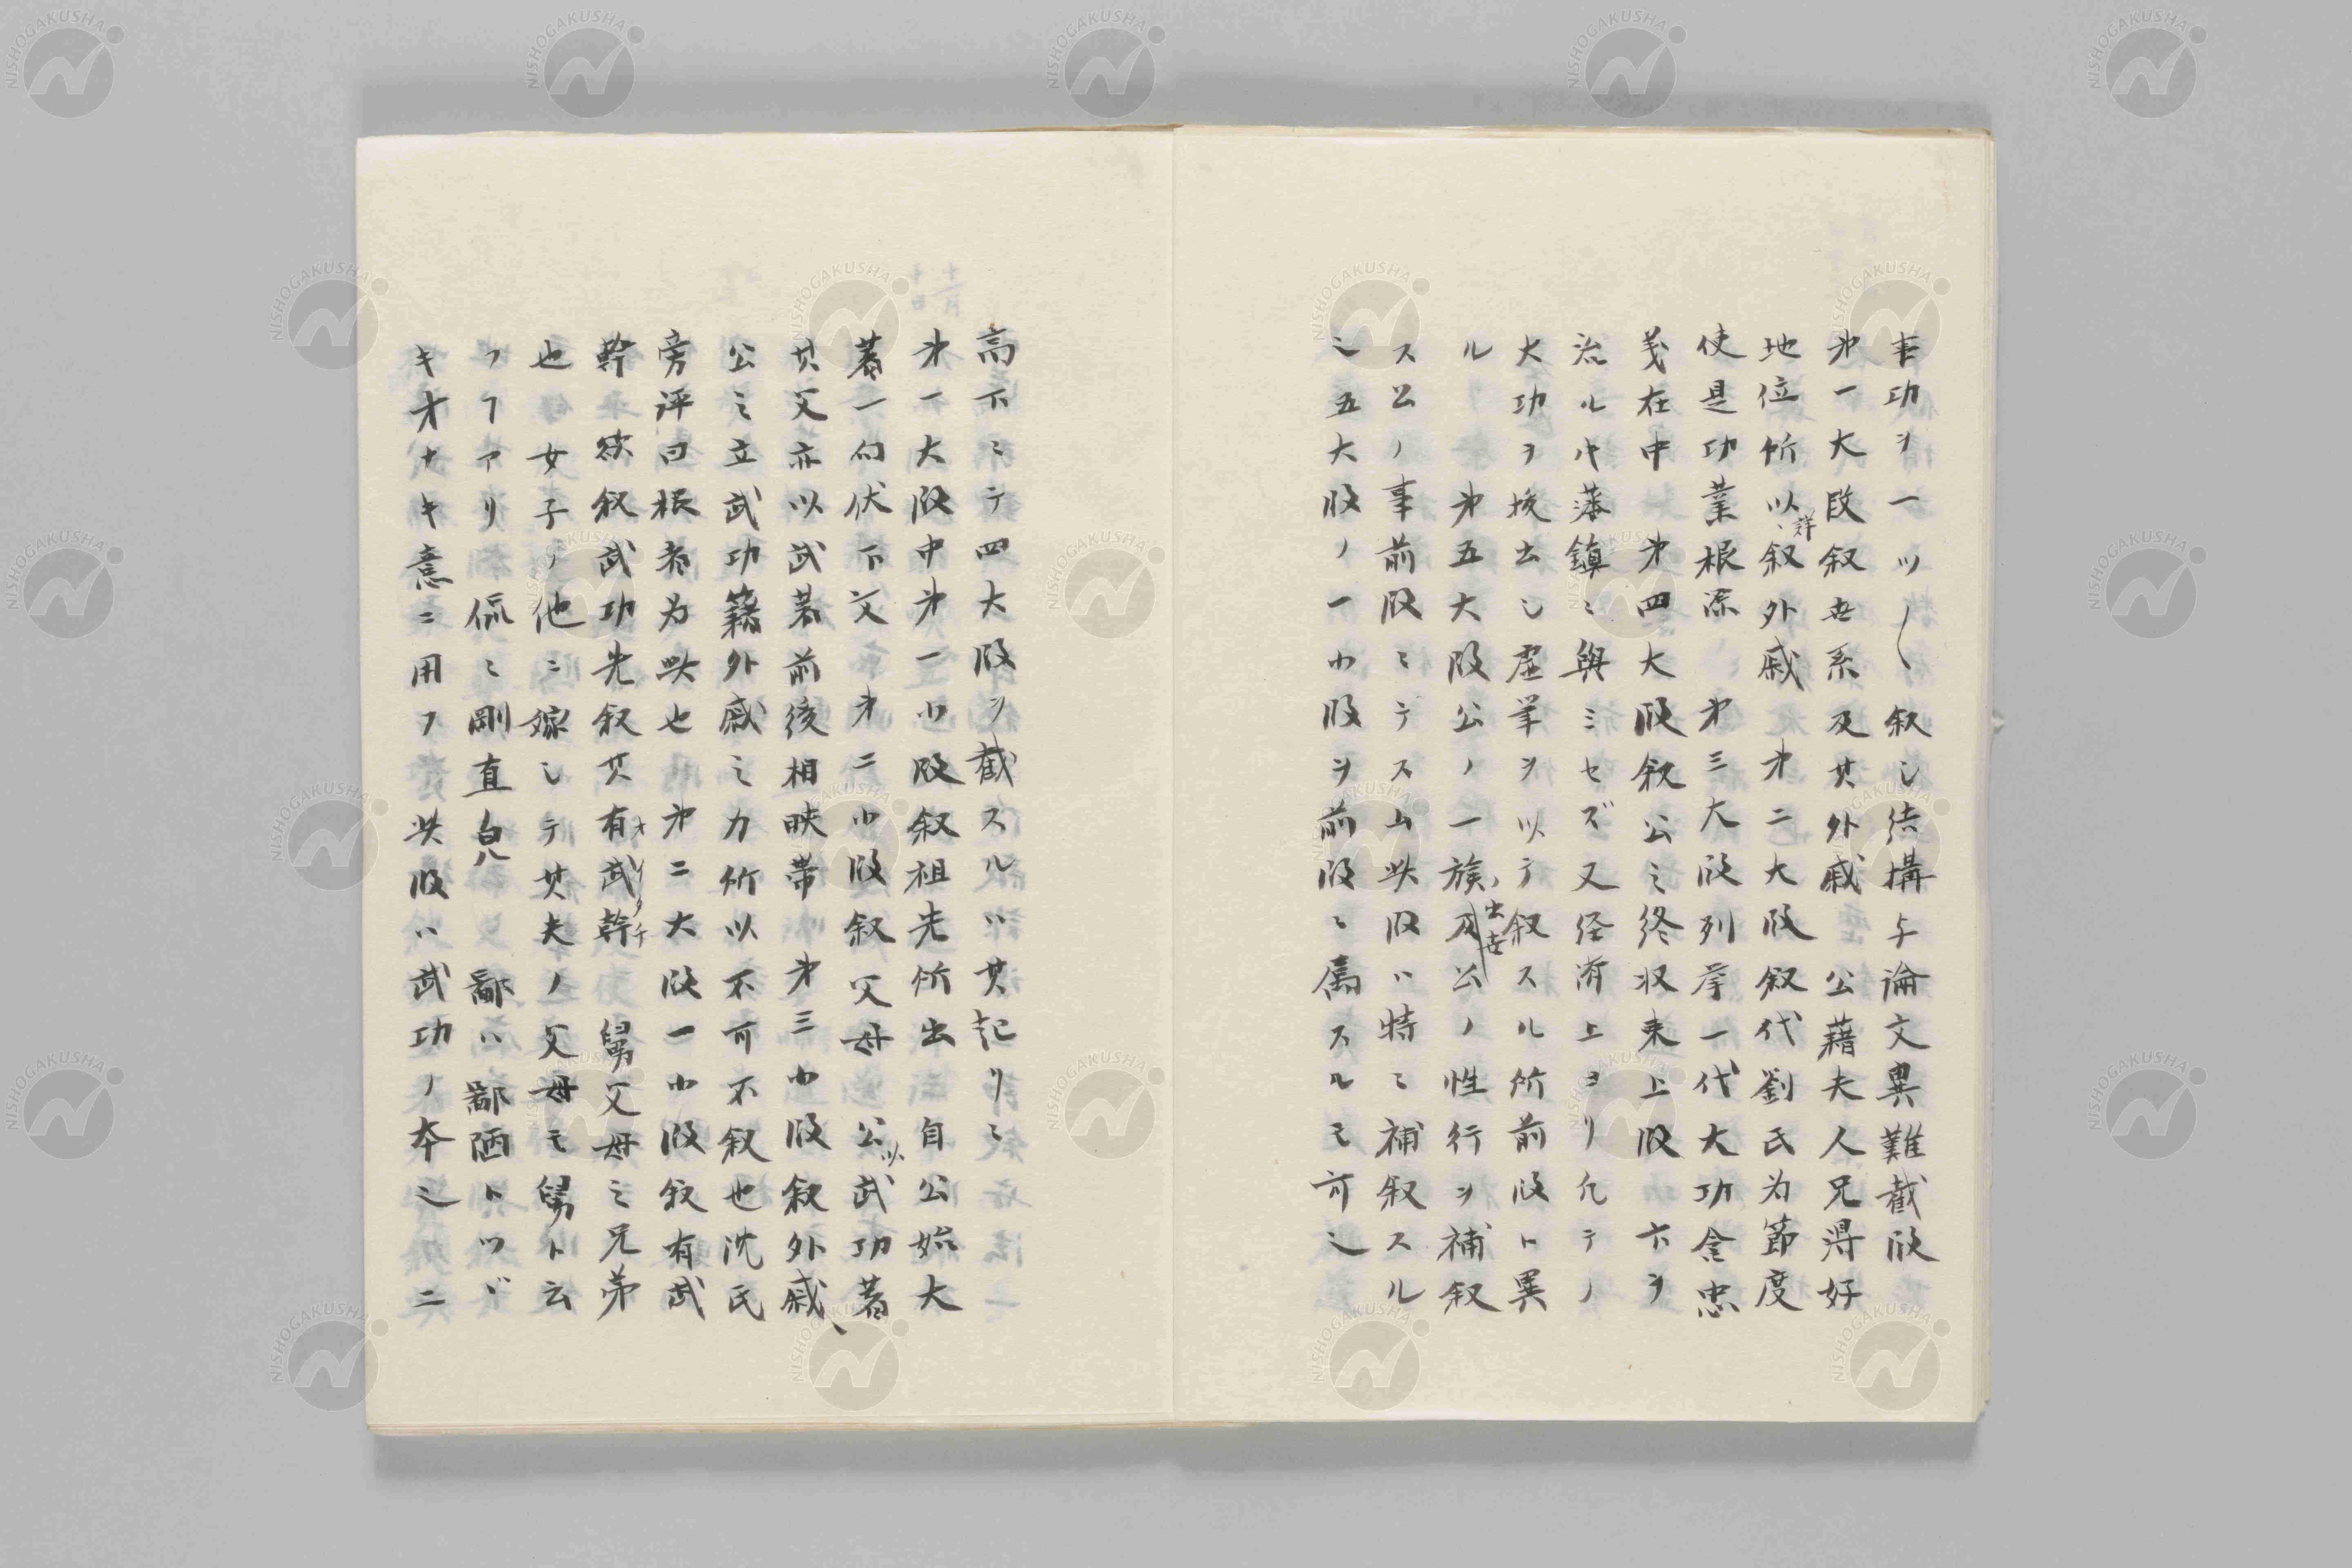 事功ヲ一ツ〱叙シ結搆与論文異難截段
第一大段叙世系及其外戚　公藉夫人兄得好
地位所以詳叙外戚　第二大段叙代劉氏為節度
使是功業根源　第三大段列挙一代大功全忠
義在中　第四大段叙公之終收束上段　六ヲ
治ルヤ藩鎮ニ與ミセズ又経済上ヨリ凡テノ
大功ヲ抜出シ虚筆ヲ以テ叙スル所前段ト異
ル　第五大段公ノ一族ノ出世及公ノ性行ヲ補叙
ス公ノ事前段ニテスム此段ハ特ニ補叙スル
之五大段ノ一小段ヲ前段ニ属スルモ可之
高下ニテ四大段ヲ截スルハ其起リニ
第一大段中第一小段叙祖先所出　自公始大
著一句伏下文　第二小段叙父母　公以武功著
其父亦以武著前後相映帯　第三小段叙外戚、
公之立武功藉外戚之力所以不可不叙也沈氏
旁評曰根者为此也　第二大段一小段叙有武
幹欲叙武功先叙其有武幹　舅父母之兄弟
也　女子ノ他ニ嫁シテ其夫ノ父母モ舅ト云
フアリ　侃ニ剛直皃　鄙ハ鄙陋トツヾ
キオナキ意ニ用フ　此段ハ武功ノ本之ニ
NISHOGAKUSHA